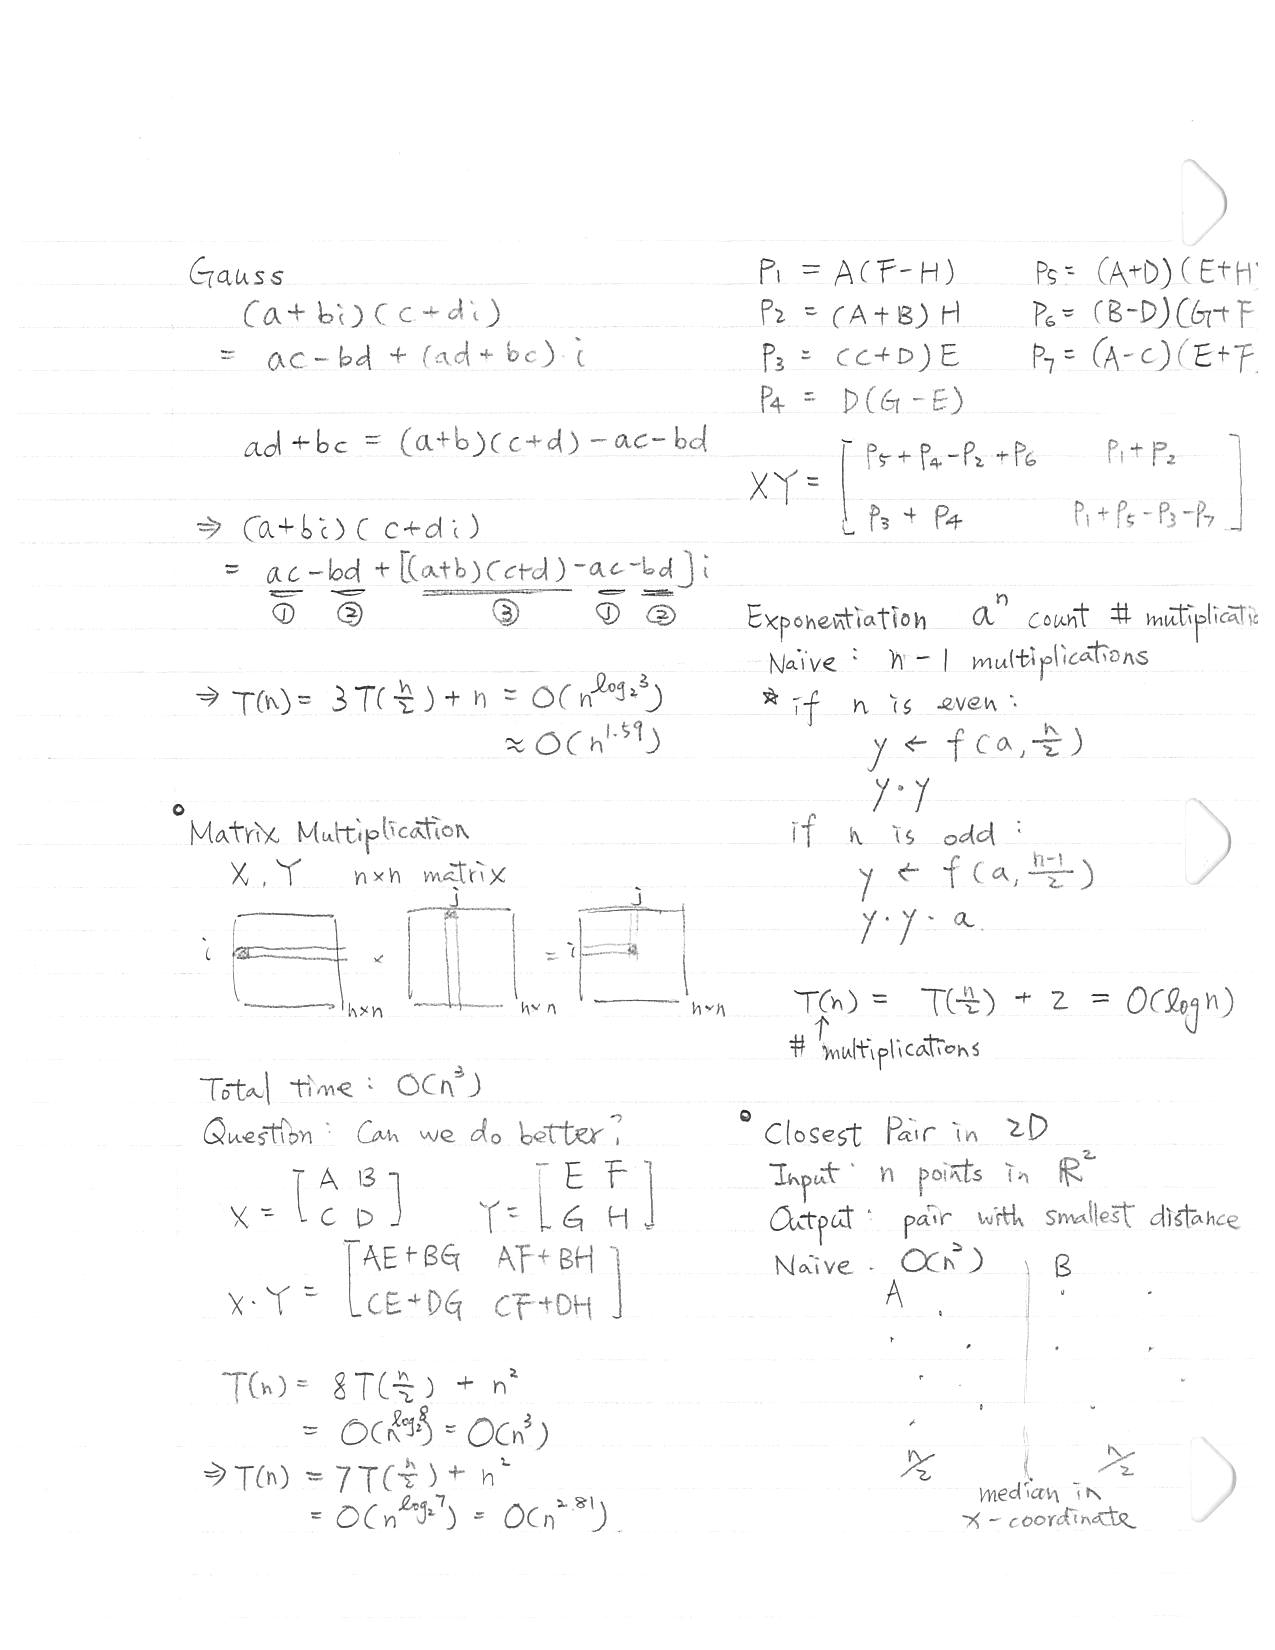 Gauss
(a+bi)(c+di)
= ac-bd + (ad+bc)·i
ad+bc = (a+b)(c+d)-ac-bd
⇒ (a+bi)(c+di)
= ac-bd + [(a+b)(c+d)-ac-bd]i
① ② ③ ① ②
⇒ T(n) = 3T(n/2) + n = O(n^log₂3)
≈ O(n^1.59)
• Matrix Multiplication
X, Y n×n matrix
j j
i × = i
n×n n×n n×n
Total time: O(n³)
Question: Can we do better?
X = [A B
C D] Y = [E F
G H]
X·Y = [AE+BG AF+BH
CE+DG CF+DH]
T(n) = 8T(n/2) + n²
= O(n^log₂8) = O(n³)
⇒ T(n) = 7T(n/2) + n²
= O(n^log₂7) = O(n^2.81).
P₁ = A(F-H) P₅ = (A+D)(E+H
P₂ = (A+B)H P₆ = (B-D)(G+F
P₃ = (C+D)E P₇ = (A-C)(E+F
P₄ = D(G-E)
XY = [P₅+P₄-P₂+P₆ P₁+P₂
P₃+P₄ P₁+P₅-P₃-P₇]
Exponentiation aⁿ count # mutiplicatio
Naive: n-1 multiplications
* if n is even:
y ← f(a, n/2)
y·y
if n is odd:
y ← f(a, (n-1)/2)
y·y·a.
T(n) = T(n/2) + 2 = O(log n)
↑
# multiplications
• Closest Pair in 2D
Input: n points in ℝ²
Output: pair with smallest distance
Naive. O(n²)
A B
n/2 n/2
median in
x-coordinate